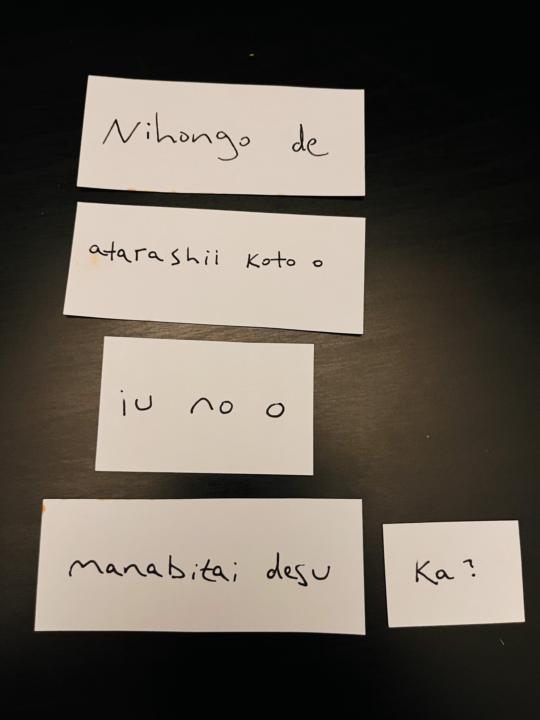 Nihongo de
atarashii koto o
iu no o
manabitai desu ka?